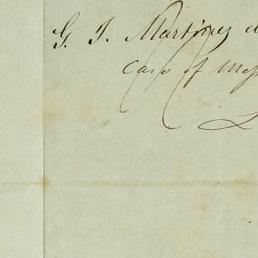 G. T. Martinez
Care of Mess